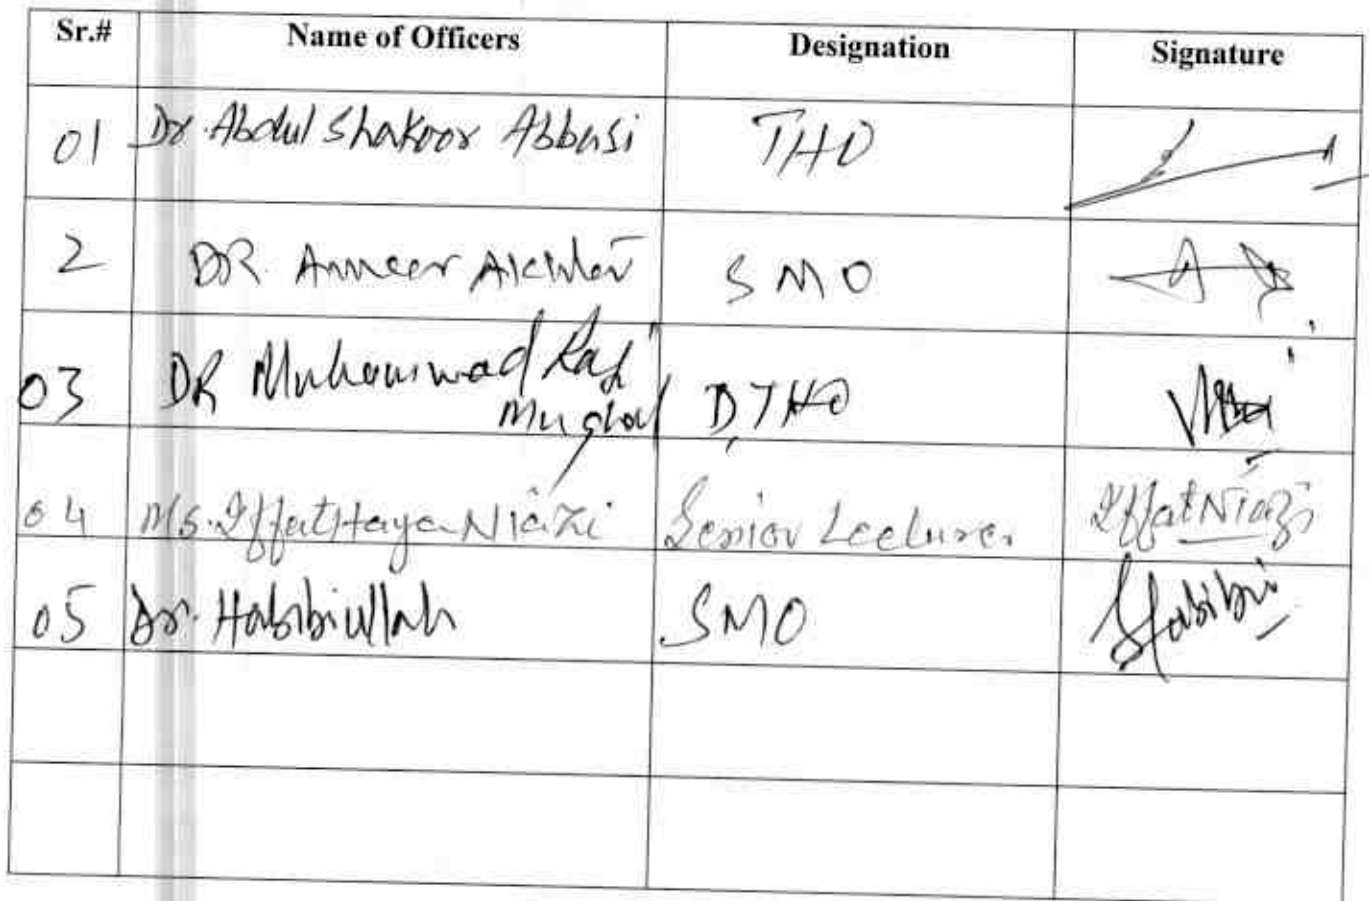 Sr.# Name of Officers Designation Signature
01 Dr. Abdul Shakoor Abbasi THO
2 DR. Ameer Akhter SMO
03 DR Muhammad Rafi DTHO
Mughal
04 Ms. Iffat Haya Niazi Senior Lecturer Iffat Niazi
05 Dr. Habibiullah SMO Habibiu